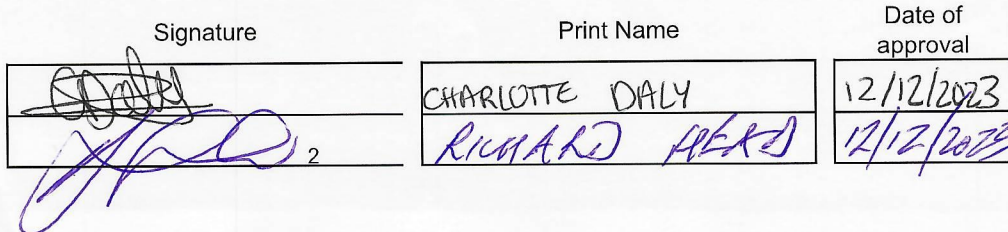 Signature Print Name Date of
approval
CDaly CHARLOTTE DALY 12/12/2023
2 RICHARD HEAD 12/12/2023